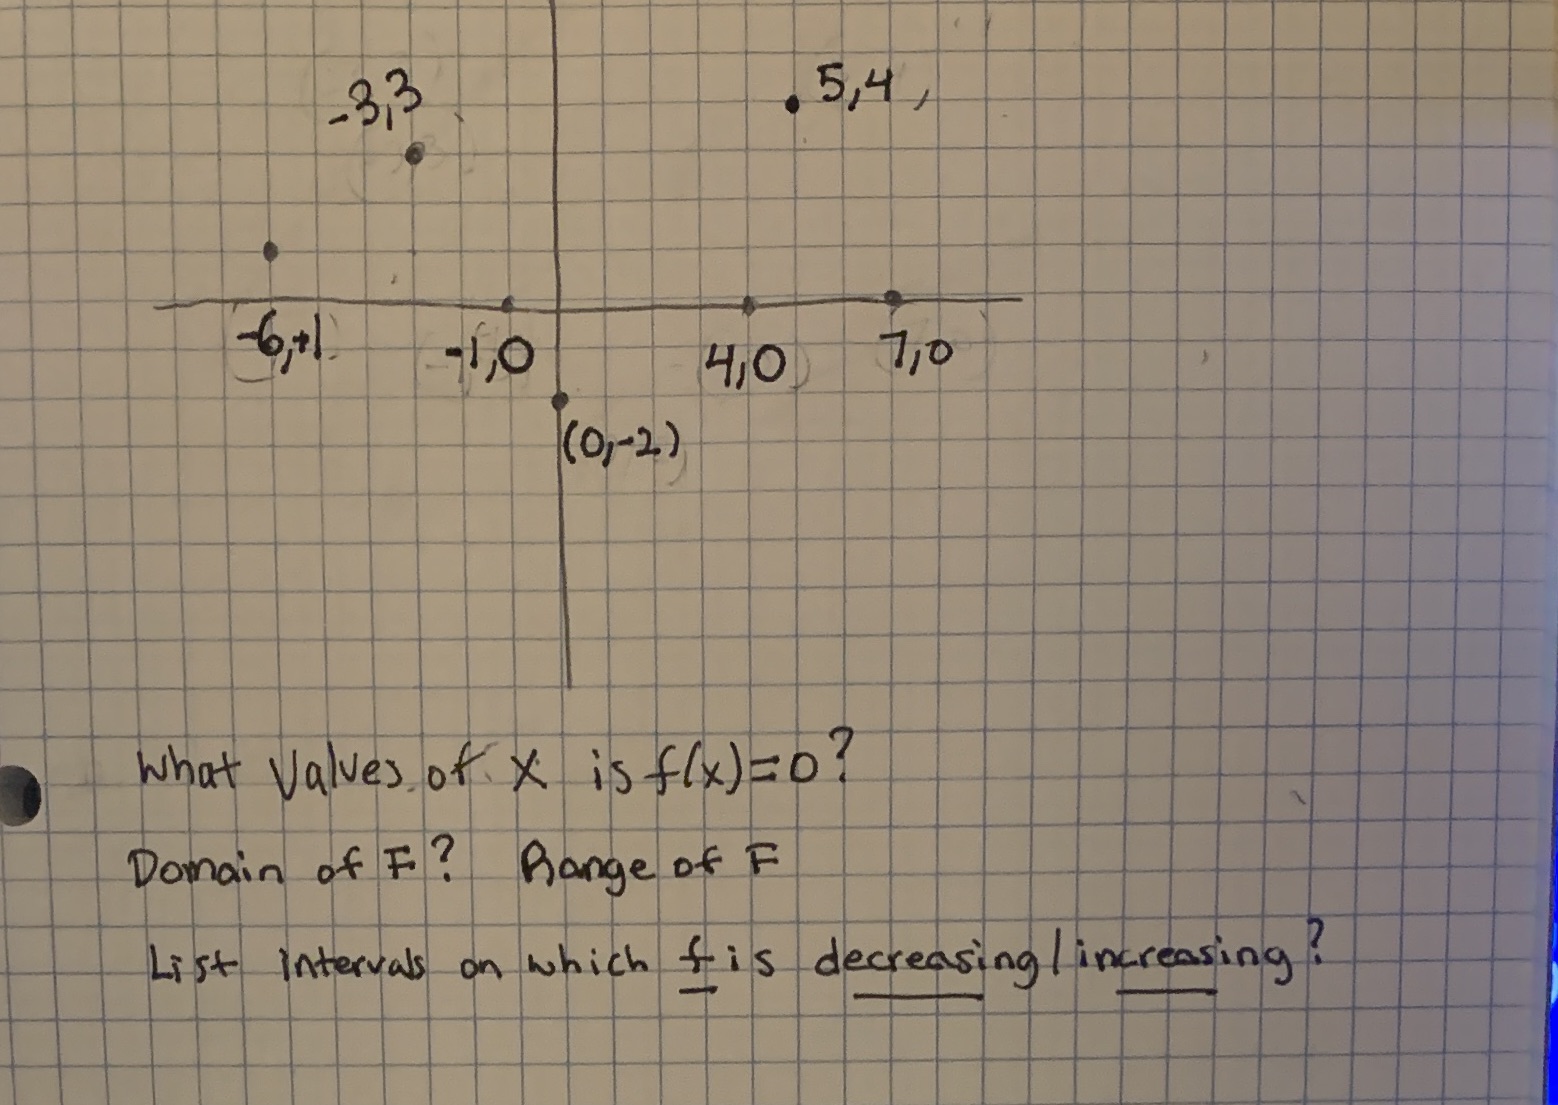 -3,3
5,4,
-6,+1
-1,0
4,0
7,0
(0,-2)
What Values of X is f(x)=0?
Domain of F? Range of F
List intervals on which f is decreasing/increasing?